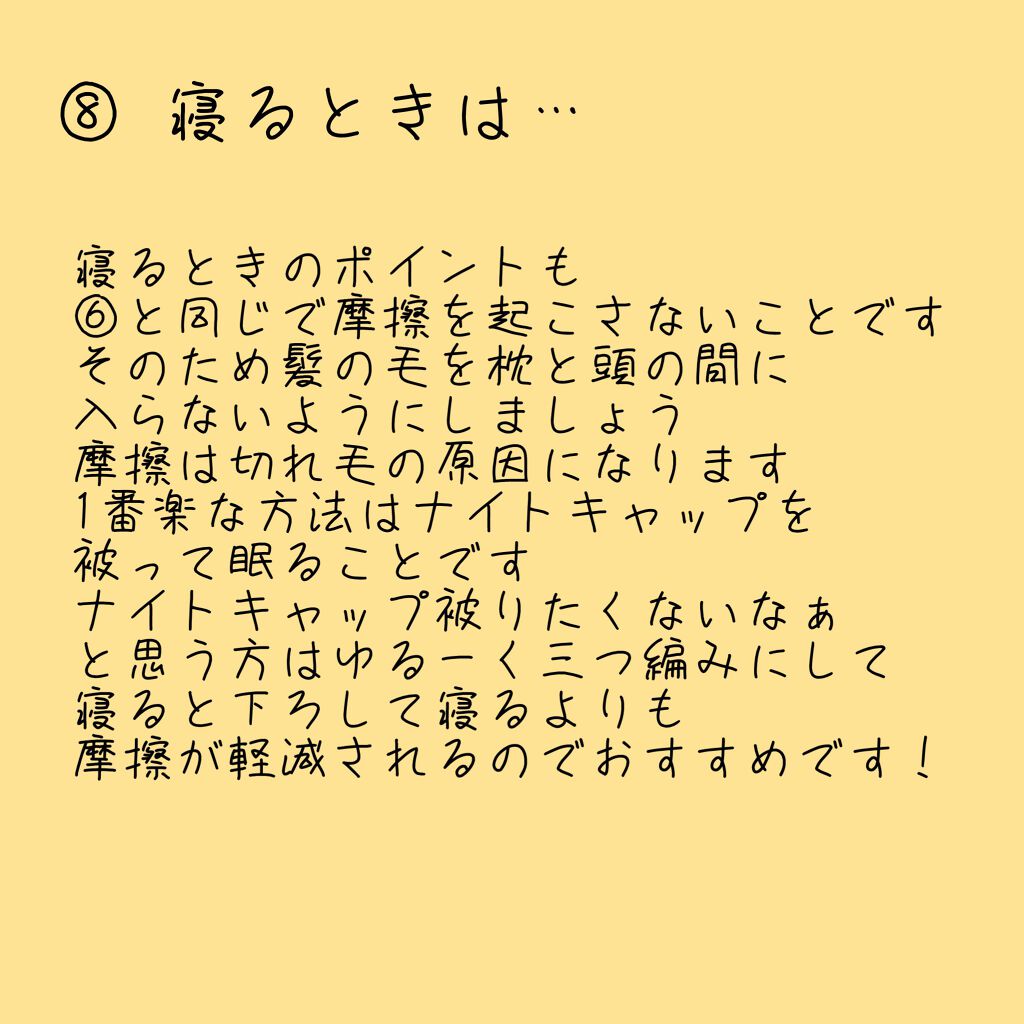 ⑧ 寝るときは…
寝るときのポイントも
⑥と同じで摩擦を起こさないことです
そのため髪の毛を枕と頭の間に
入らないようにしましょう
摩擦は切れ毛の原因になります
1番楽な方法はナイトキャップを
被って眠ることです
ナイトキャップ被りたくないなぁ
と思う方はゆるーく三つ編みにして
寝ると下ろして寝るよりも
摩擦が軽減されるのでおすすめです！